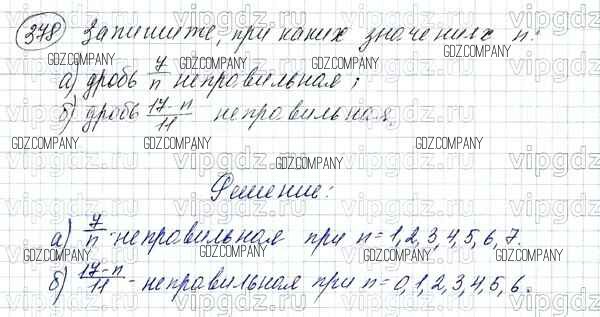 378 Запишите, при каких значениях n:
а) дробь 7/n неправильная;
б) дробь 17-n/11 неправильная.
Решение:
а) 7/n - неправильная при n=1,2,3,4,5,6,7.
б) 17-n/11 - неправильная при n=0,1,2,3,4,5,6.